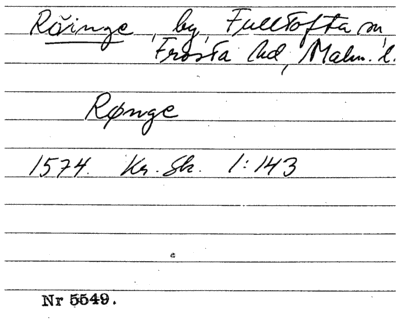 Röinge, by, Fulltofta sn,
Frosta hd, Malm. l.
Rønge
1574. Kr. Sk. 1:143
Nr 5549.